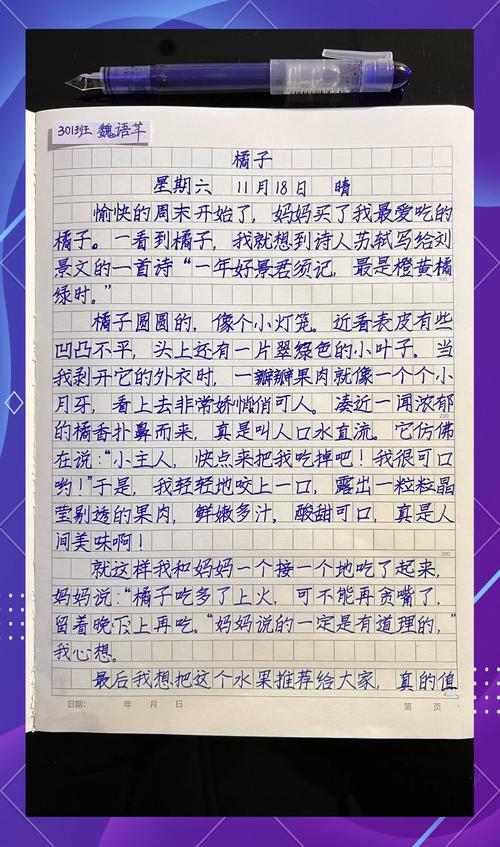 301班 魏语芊
橘子
星期六 11月18日 晴
愉快的周末开始了，妈妈买了我最爱吃的
橘子。一看到橘子，我就想到诗人苏轼写给刘
景文的一首诗“一年好景君须记，最是橙黄橘
绿时。”
100
橘子圆圆的，像个小灯笼。近看表皮有些
凹凸不平，头上还有一片翠绿色的小叶子。当
我剥开它的外衣时，一瓣瓣果肉就像一个个小
月牙，看上去非常娇俏可人。凑近一闻浓郁
200
的橘香扑鼻而来，真是叫人口水直流。它仿佛
在说：“小主人，快点来把我吃掉吧！我很可口
哟！”于是，我轻轻地咬上一口，露出一粒粒晶
莹剔透的果肉，鲜嫩多汁，酸甜可口，真是人
间美味啊！
300
就这样我和妈妈一个接一个地吃了起来，
妈妈说：“橘子吃多了上火，可不能再贪嘴了，
留着晚上再吃。“妈妈说的一定是有道理的，”
我心想。
最后我想把这个水果推荐给大家，真的值
日期： 年 月 日
第 页